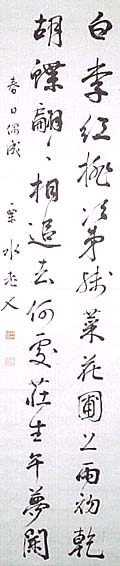 白李紅桃次第殘菜花圃上雨初乾
胡蝶翩々相追去何處莊生午夢闌
春日偶成 栗水老人